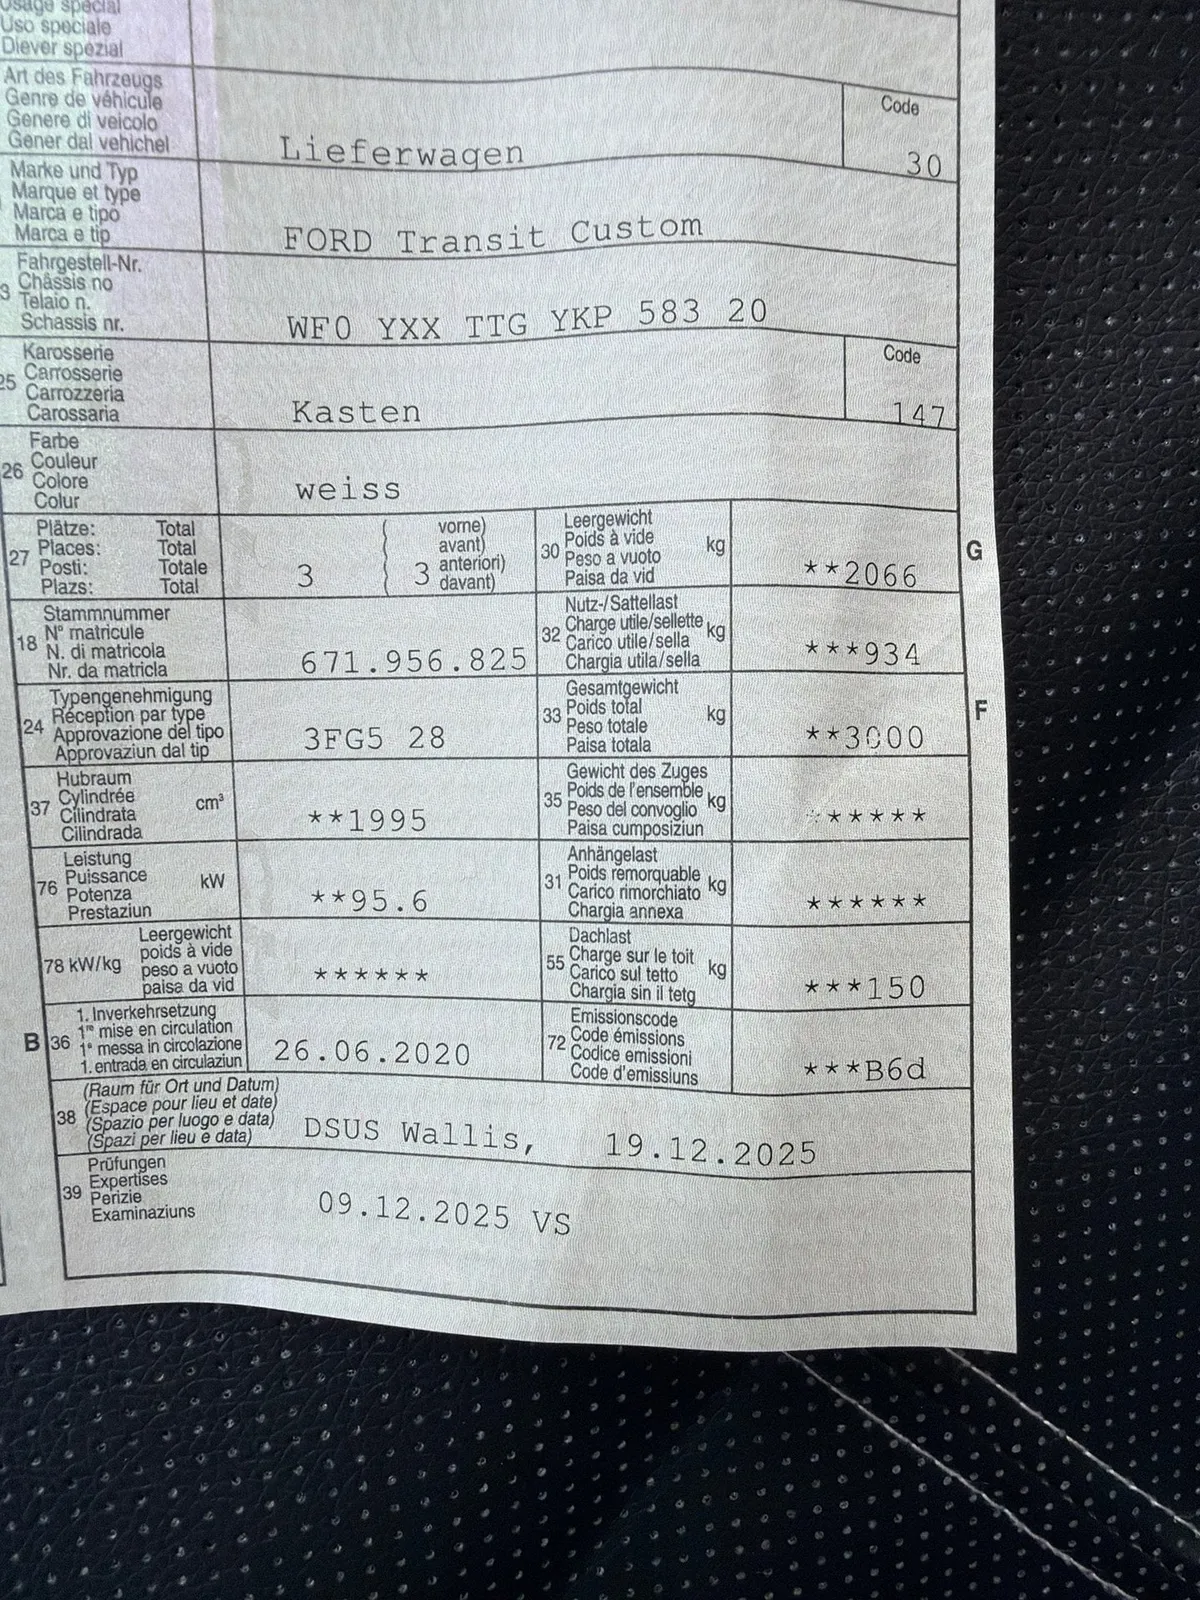 Usage spécial
Uso speciale
Diever spezial
Art des Fahrzeugs
Genre de véhicule
Genere di veicolo
Gener dal vehichel
Lieferwagen
Code
30
Marke und Typ
Marque et type
Marca e tipo
Marca e tip
FORD Transit Custom
3
Fahrgestell-Nr.
Châssis no
Telaio n.
Schassis nr.
WF0 YXX TTG YKP 583 20
25
Karosserie
Carrosserie
Carrozzeria
Carossaria
Kasten
Code
147
26
Farbe
Couleur
Colore
Colur
weiss
27
Plätze: Total
Places: Total
Posti: Totale
Plazs: Total
3
3
vorne)
avant)
anteriori)
davant)
30
Leergewicht
Poids à vide
Peso a vuoto
Paisa da vid
kg
**2066
G
18
Stammnummer
N° matricule
N. di matricola
Nr. da matricla
671.956.825
32
Nutz-/Sattellast
Charge utile/sellette
Carico utile/sella
Chargia utila/sella
kg
***934
24
Typengenehmigung
Réception par type
Approvazione del tipo
Approvaziun dal tip
3FG5 28
33
Gesamtgewicht
Poids total
Peso totale
Paisa totala
kg
**3000
F
37
Hubraum
Cylindrée
Cilindrata
Cilindrada
cm³
**1995
35
Gewicht des Zuges
Poids de l'ensemble
Peso del convoglio
Paisa cumposiziun
kg
******
76
Leistung
Puissance
Potenza
Prestaziun
kW
**95.6
31
Anhängelast
Poids remorquable
Carico rimorchiato
Chargia annexa
kg
******
78 kW/kg
Leergewicht
poids à vide
peso a vuoto
paisa da vid
******
55
Dachlast
Charge sur le toit
Carico sul tetto
Chargia sin il tetg
kg
***150
B
36
1. Inverkehrsetzung
1re mise en circulation
1a messa in circolazione
1. entrada en circulaziun
26.06.2020
72
Emissionscode
Code émissions
Codice emissioni
Code d'emissiuns
***B6d
38
(Raum für Ort und Datum)
(Espace pour lieu et date)
(Spazio per luogo e data)
(Spazi per lieu e data)
DSUS Wallis, 19.12.2025
39
Prüfungen
Expertises
Perizie
Examinaziuns
09.12.2025 VS